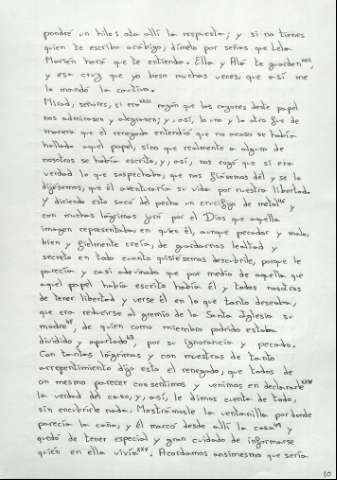 pondré un hilo a esta allí la respuesta; y si no tienes
quien te escriba arábigo, dímelo por señas que Lela
Marién hará que te entienda. Ella y Alá te guarden,
y esa cruz que yo beso muchas veces que así me
lo mandó la cautiva.
Mirad, señores, si era razón que las razones deste papel
nos admirasen y alegrasen; y, así, lo uno y lo otro fue de
manera que el renegado entendió que no acaso se había
hallado aquel papel, sino que realmente a alguno de
nosotros se había escrito, y, así, nos rogó que si era
verdad lo que sospechaba, que nos fiásemos dél y se lo
dijésemos, que él aventuraría su vida por nuestra libertad.
Y diciendo esto sacó del pecho un crucifijo de metal y
con muchas lágrimas juró por el Dios que aquella
imagen representaba, en quien él, aunque pecador y malo,
bien y fielmente creía, de guardarnos lealtad y
secreto en todo cuanto quisiésemos descubrirle, porque le
parecía y casi adevinaba que por medio de aquella que
aquel papel había escrito había él y todos nosotros
de tener libertad y verse él en lo que tanto deseaba,
que era reducirse al gremio de la Santa Iglesia su
madre, de quien como miembro podrido estaba
dividido y apartado, por su ignorancia y pecado.
Con tantas lágrimas y con muestras de tanto
arrepentimiento dijo esto el renegado, que todos de
un mesmo parecer consentimos y venimos en declararle
la verdad del caso; y, así, le dimos cuenta de todo,
sin encubrirle nada. Mostrámosle la ventanilla por donde
parecía la caña, y él marcó desde allí la casa y
quedó de tener especial y gran cuidado de informarse
quién en ella vivía. Acordamos ansimesmo que sería